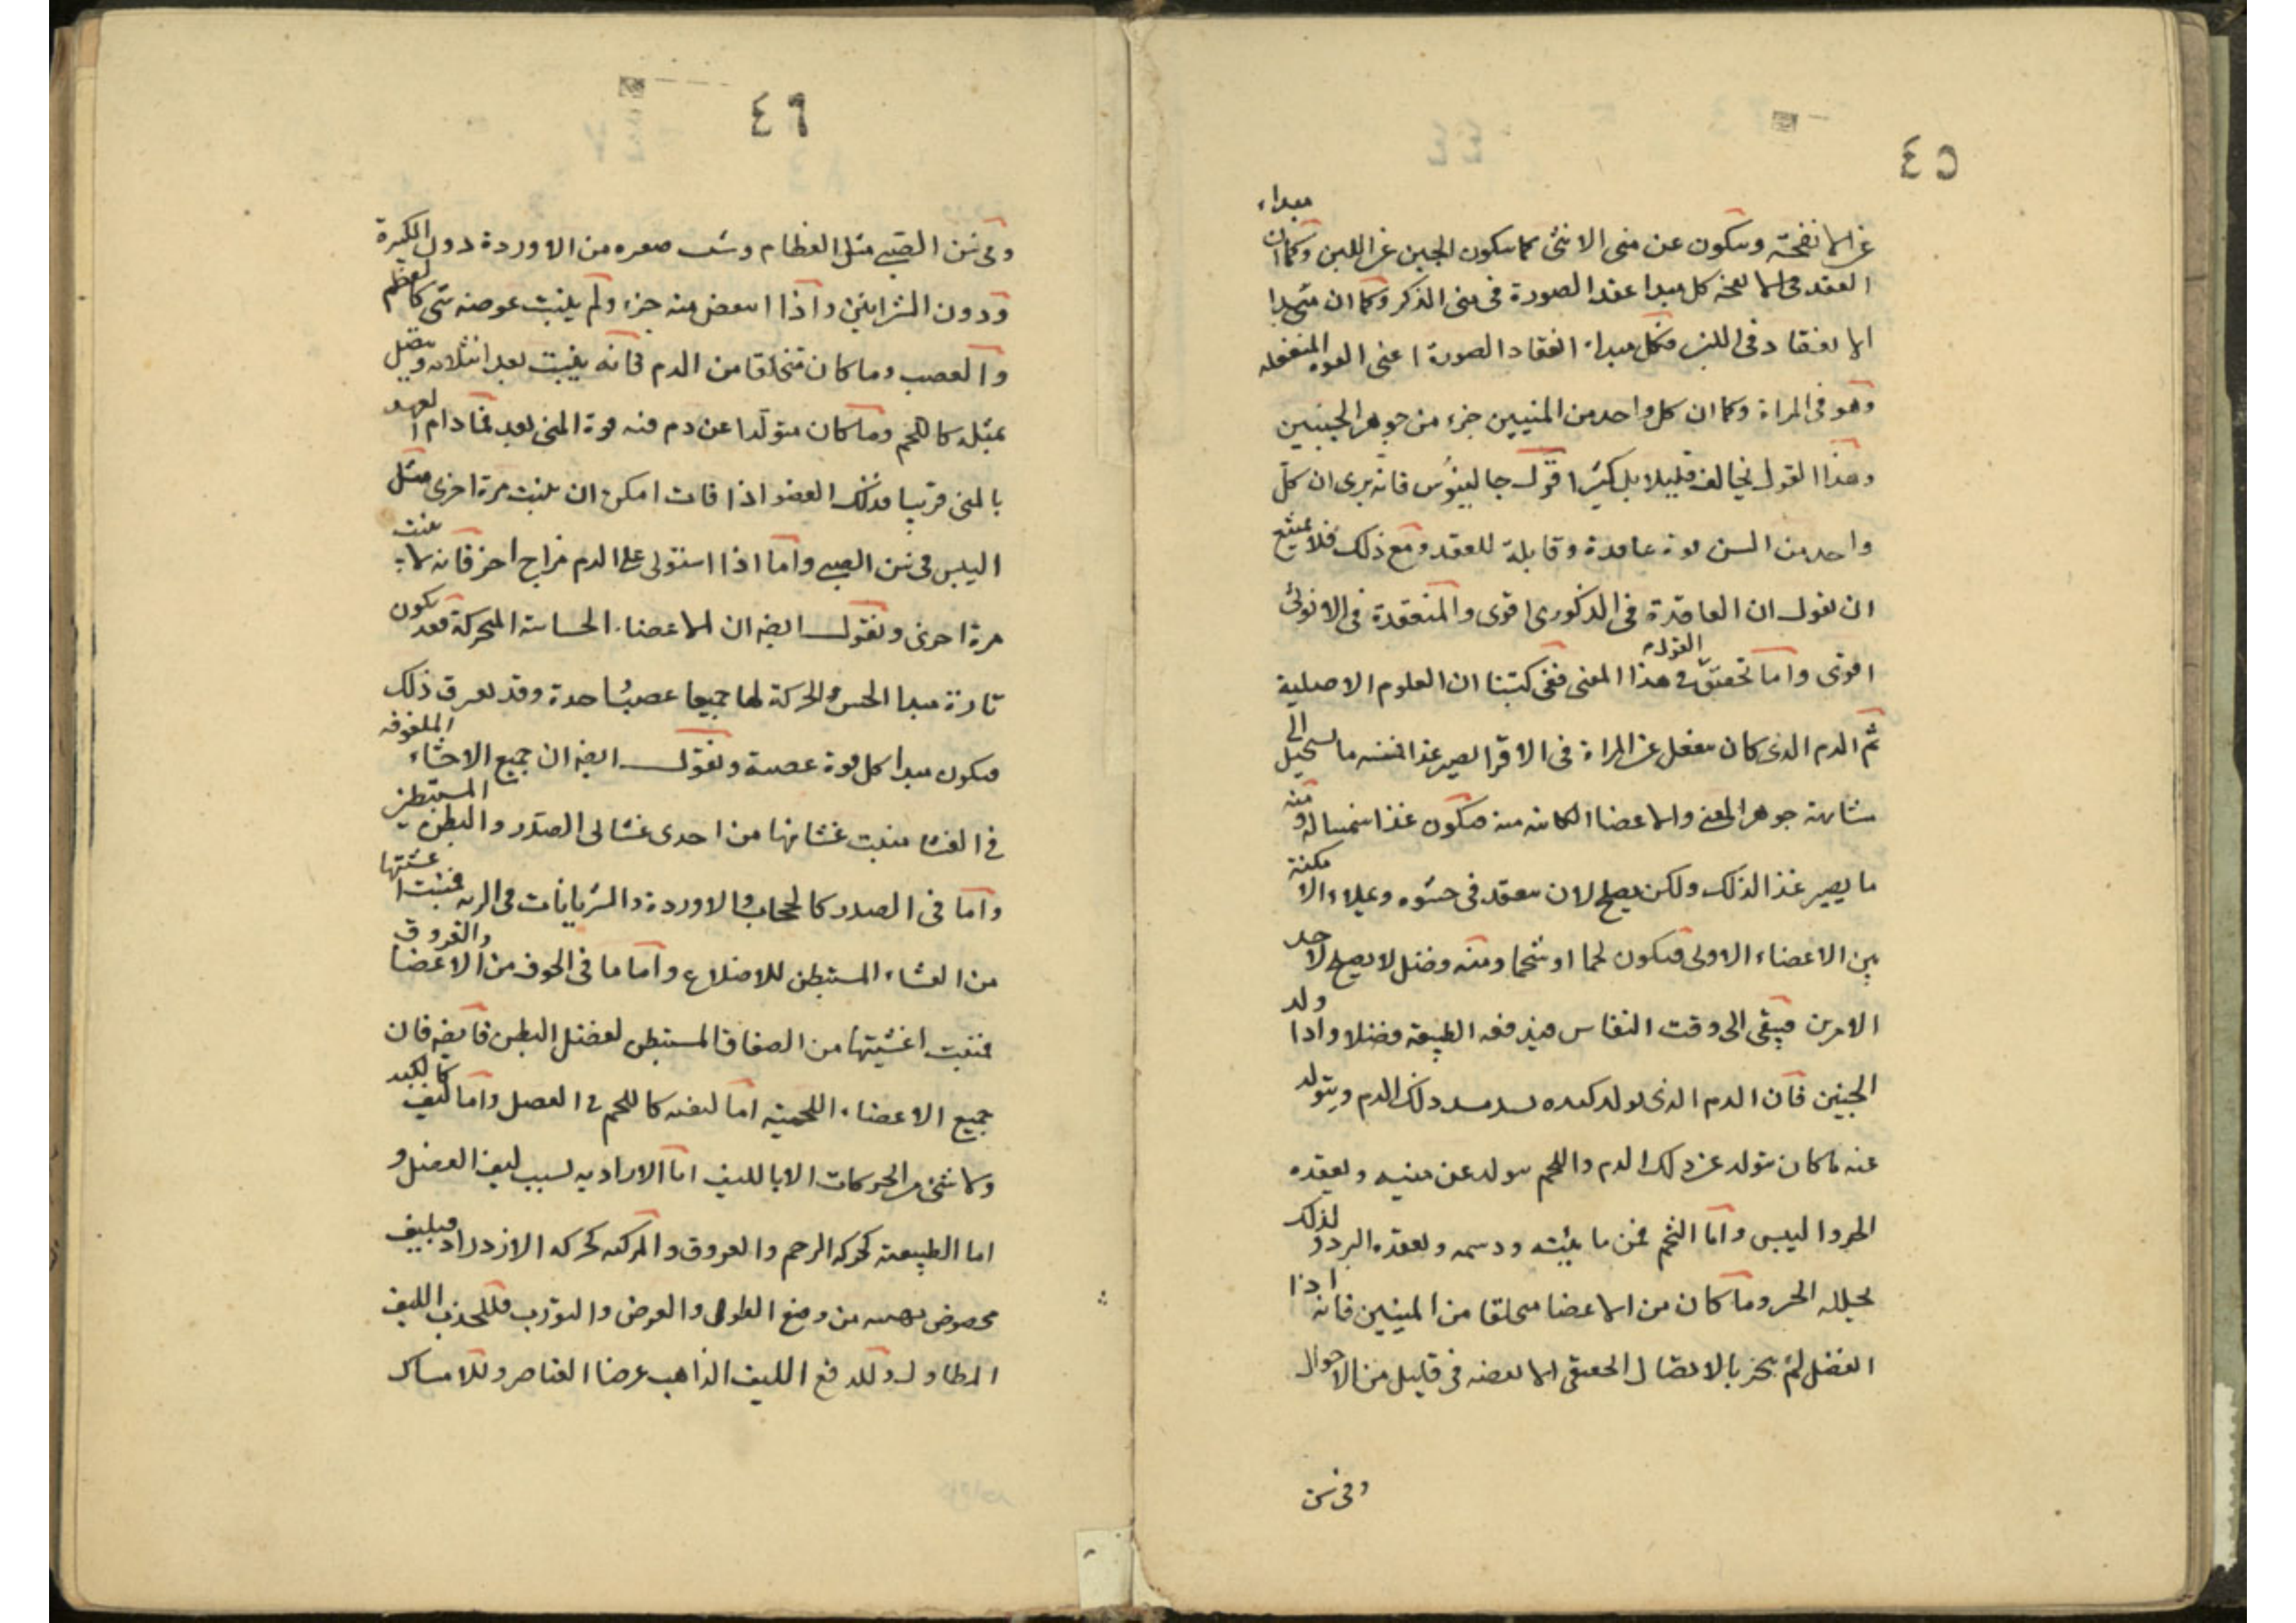 ٤٥
عن الانفحة ويتكون عن منى الانثى كما يتكون الجبن عن اللبن وكما ان مبداء
العقد فى الانفحة كذلك مبدا عقد الصورة فى منى الذكر وكما ان مبدا
الانعقاد فى اللبن فكذلك مبداء انعقاد الصورة اعنى القوه المنفعله
وهو فى المراة وكما ان كل واحد من المنيين جزء من جوهر الجنينين
وهذا القول يخالف قليلا بل كثيرا قول جالينوس فانه يرى ان كل
واحد من المنيين قوة عاقدة وقابلة للعقد ومع ذلك فلا يمتنع
ان يقول ان العاقدة فى الذكورى اقوى والمنعقدة فى الانوثى
اقوى واما تحقيق القول فى هذا المعنى ففى كتبنا ان العلوم الاصلية
ثم الدم الذى كان ينفصل عن المراة فى الاقرا يصير غذا فمنه ما يستحيل الى
مشابهة جوهر المنى والاعضا الكائنه منه فيكون غذا منميا له ومنه
ما يصير غذا لذلك ولكن يصلح لان ينعقد فى حشوه ويملاء الامكنة
بين الاعضاء الاولى فيكون لحما او شحما ومنه فضل لا يصلح لاحد
الامرين فيبقى الى وقت النفاس فيدفعه الطبيعة فضلا واذا ولد
الجنين فان الدم الذى يولد كبده يسد مسد ذلك الدم ويتولد
عنه ما كان يتولد عن ذلك الدم واللحم يتولد عن متينه ويعقده
الحر واليبس واما الشحم فمن مائيته ودسمه ويعقده البرد ولذلك
يحلله الحر وما كان من الاعضا متخلقا من المنيين فانه اذا
انفصل لم ينجبر بالاتصال الحقيقى الا بعضه فى قليل من الاحوال
وفى سن
٤٦
وفى سن الصبى مثل العظام وشعب صغيره من الاوردة دون الكبيرة
ودون الشرايين واذا انتقص منه جزء ولم ينبت عوضه شى كالعظم
والعصب وما كان متخلقا من الدم فانه ينبت بعد انثلامه ويتصل
بمثله كاللحم وما كان متولدا عن دم فيه قوة المنى بعد فما دام العهد
بالمنى قريبا فذلك العضو اذا فات امكن ان ينبت مرة اخرى مثل
السن فى سن الصبى واما اذا استولى على الدم مزاج اخر فانه لا ينبت
مرة اخرى ونقول ايضا ان الاعضاء الحساسة المتحركة قد يكون
تارة مبدا الحس والحركة لها جميعا عصبا واحدة وقد يفرق ذلك
فيكون مبدا كل قوة عصبة ونقول ايضا ان جميع الاحشاء الملفوفه
فى الغشا منبت غشائها من احدى غشائى الصدر والبطن المستبطنين
واما فى الصدر كالحجاب والاوردة والشريانات فى الريه فمنبت اغشيتها
من الغشاء المستبطن للاضلاع واما ما فى الجوف من الاعضا والعروق
فمنبت اغشيتها من الصفاق المستبطن لعضل البطن فايضا فان
جميع الاعضاء اللحمية اما ليفيه كاللحم فى العضل واما لا ليف كالكبد
ولا شى من الحركات الا بالليف اما الارادية بسبب ليف العضل و
اما الطبيعة كحركه الرحم والعروق والمركبه كحركه الازدراد فبليف
مخصوص بهيئه من وضع الطول والعرض والتورب فللجذب الليف
المطاول وللدفع الليف الذاهب عرضا العاصر وللامساك